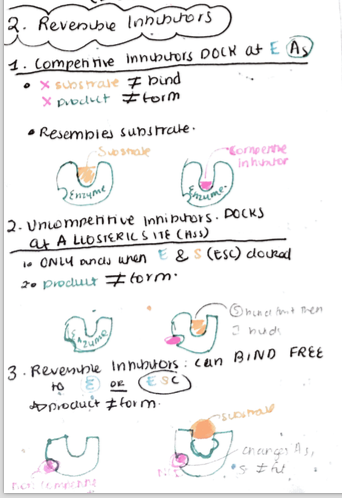 2. Reversible Inhibitors
1. Competitive inhibitors DOCK at E As
• x substrate ≠ bind
x product ≠ form
• Resembles substrate.
Substrate
Competitive inhibitor
Enzyme
Enzyme
2. Uncompetitive inhibitors. DOCKS
at ALLOSTERIC SITE (Ass)
1• ONLY binds when E & S (ESC) docked
2• product ≠ form.
Enzyme
S binds first then
I binds
3. Reversible Inhibitors: can BIND FREE
to E OR ESC
product ≠ form.
substrate
changes As,
• S ≠ fit
Non Competitive